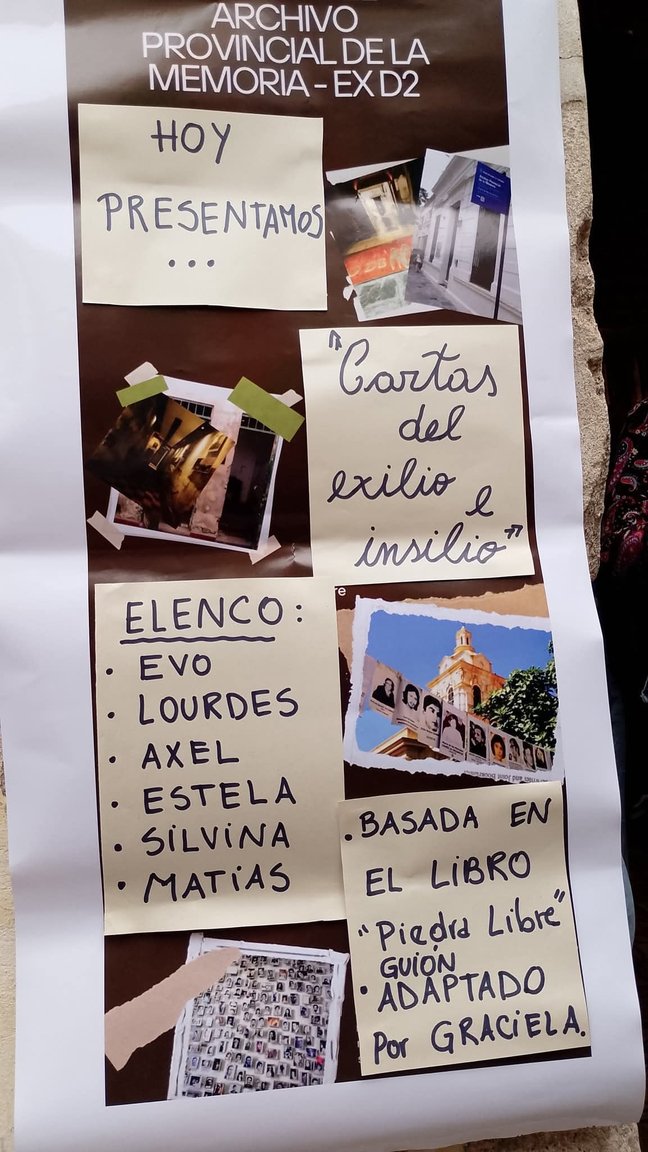 ARCHIVO
PROVINCIAL DE LA
MEMORIA – EX D2
HOY
PRESENTAMOS
...
"Cartas
del
exilio e
insilio"
ELENCO:
• EVO
• LOURDES
• AXEL
• ESTELA
• SILVINA
• MATIAS
• BASADA EN
EL LIBRO
"Piedra Libre"
• GUIÓN
ADAPTADO
Por GRACIELA.